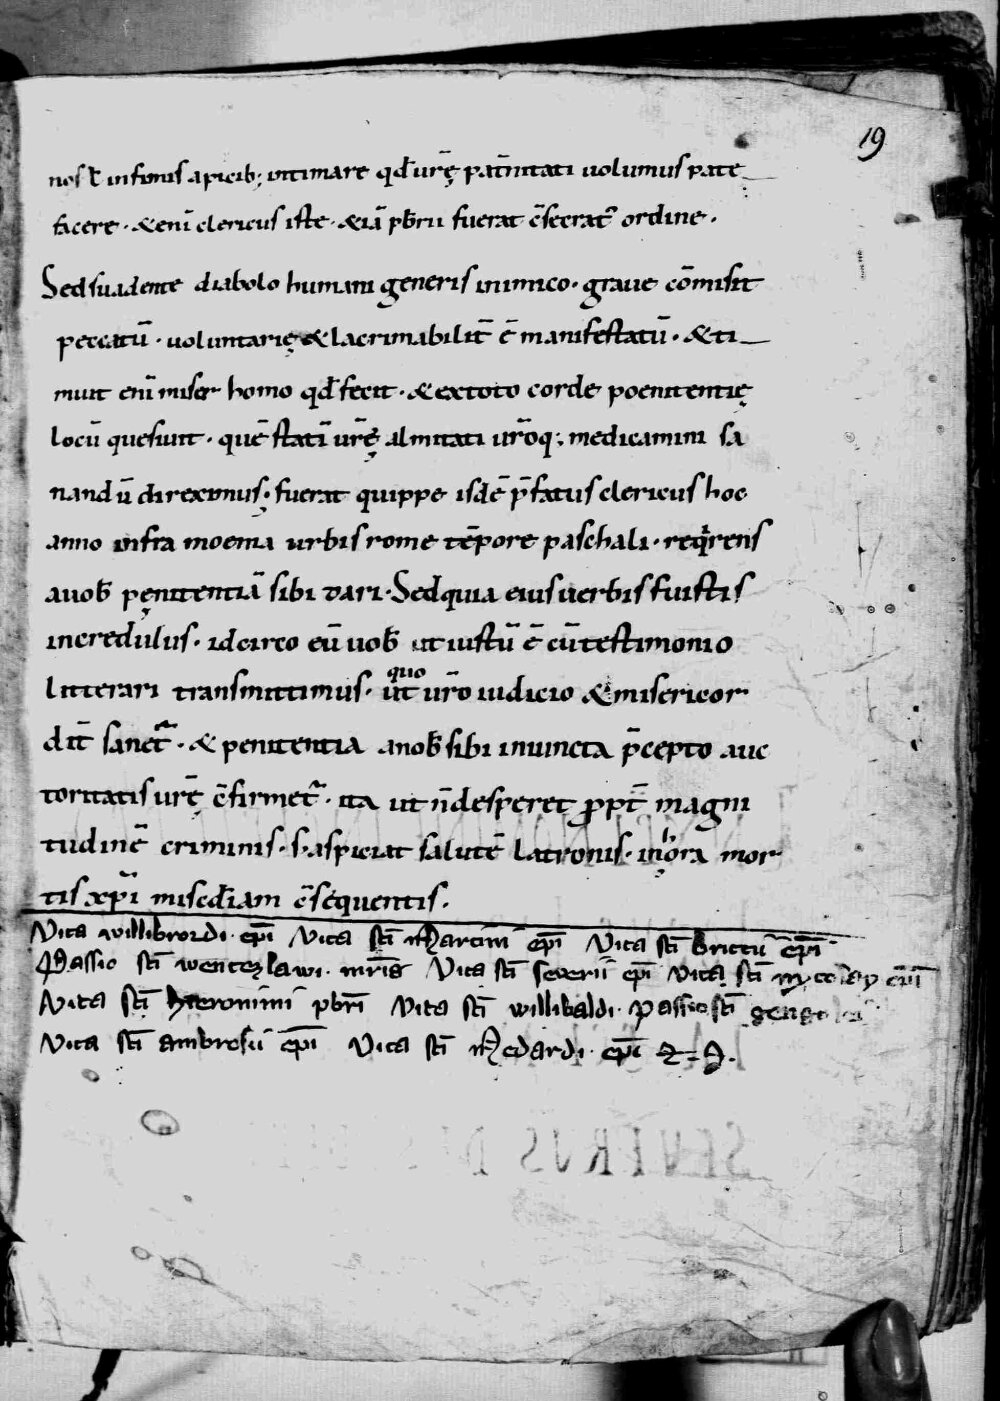 19
nos ł infimis apicib; intimare qđ ur̄ę pat̄nitati uolumus pate
facere · &eni̅ clericus iste · &iā pb̄rii fuerat c̄secrat᷒ ordine ·
Sed suadente diabolo humani generis inimico · graue cōmisit
peccatū · uoluntarię & lacrimabilit̄ ē manifestatū · & ti
muit eni̅ miser homo qđ fecit · & ex toto corde poenitentię
locū quesiuit · quē statī ur̄ę almitati ur̄oq; medicamini sa
nandū direximus · fuerat quippe isdē p̄fatus clericus hoc
anno infra moenia urbis rome tēpore paschali · req̇rens
a uob̄ pęnitentiā sibi dari · Sed quia eius uerbis fuistis
incredulus · idcirco eū uob̄ ut iustū ē cū testimonio
litterari transmittimus · quo ut ur̄o iudicio & misericor
dit̄ sanet᷑ · & penitentia a nob̄ sibi iniuncta p̄cepto auc
toritatis ur̄ę c̄firmet᷑ · ita ut n̄ desperet ꝓpt̄ magni
tudinē criminis · s· aspiciat salutē latronis · in hora mor
tis xp̄i misedīam c̄sequentis .
Vita willibrordi · ep̄i Vita sc̄i Martini ep̄i Vita sc̄i brictii ep̄i
Passio sc̄i wentezlawi · mr̄is Vita sc̄i seuerii ep̄i Vita sc̄i nycolay ep̄i
Vita sc̄i hieronimi pbr̄i Vita sc̄i willibaldi · passio sc̄i
Vita sc̄i ambrosii ep̄i Vita sc̄i Medardi · ep̄i
SEVERVS